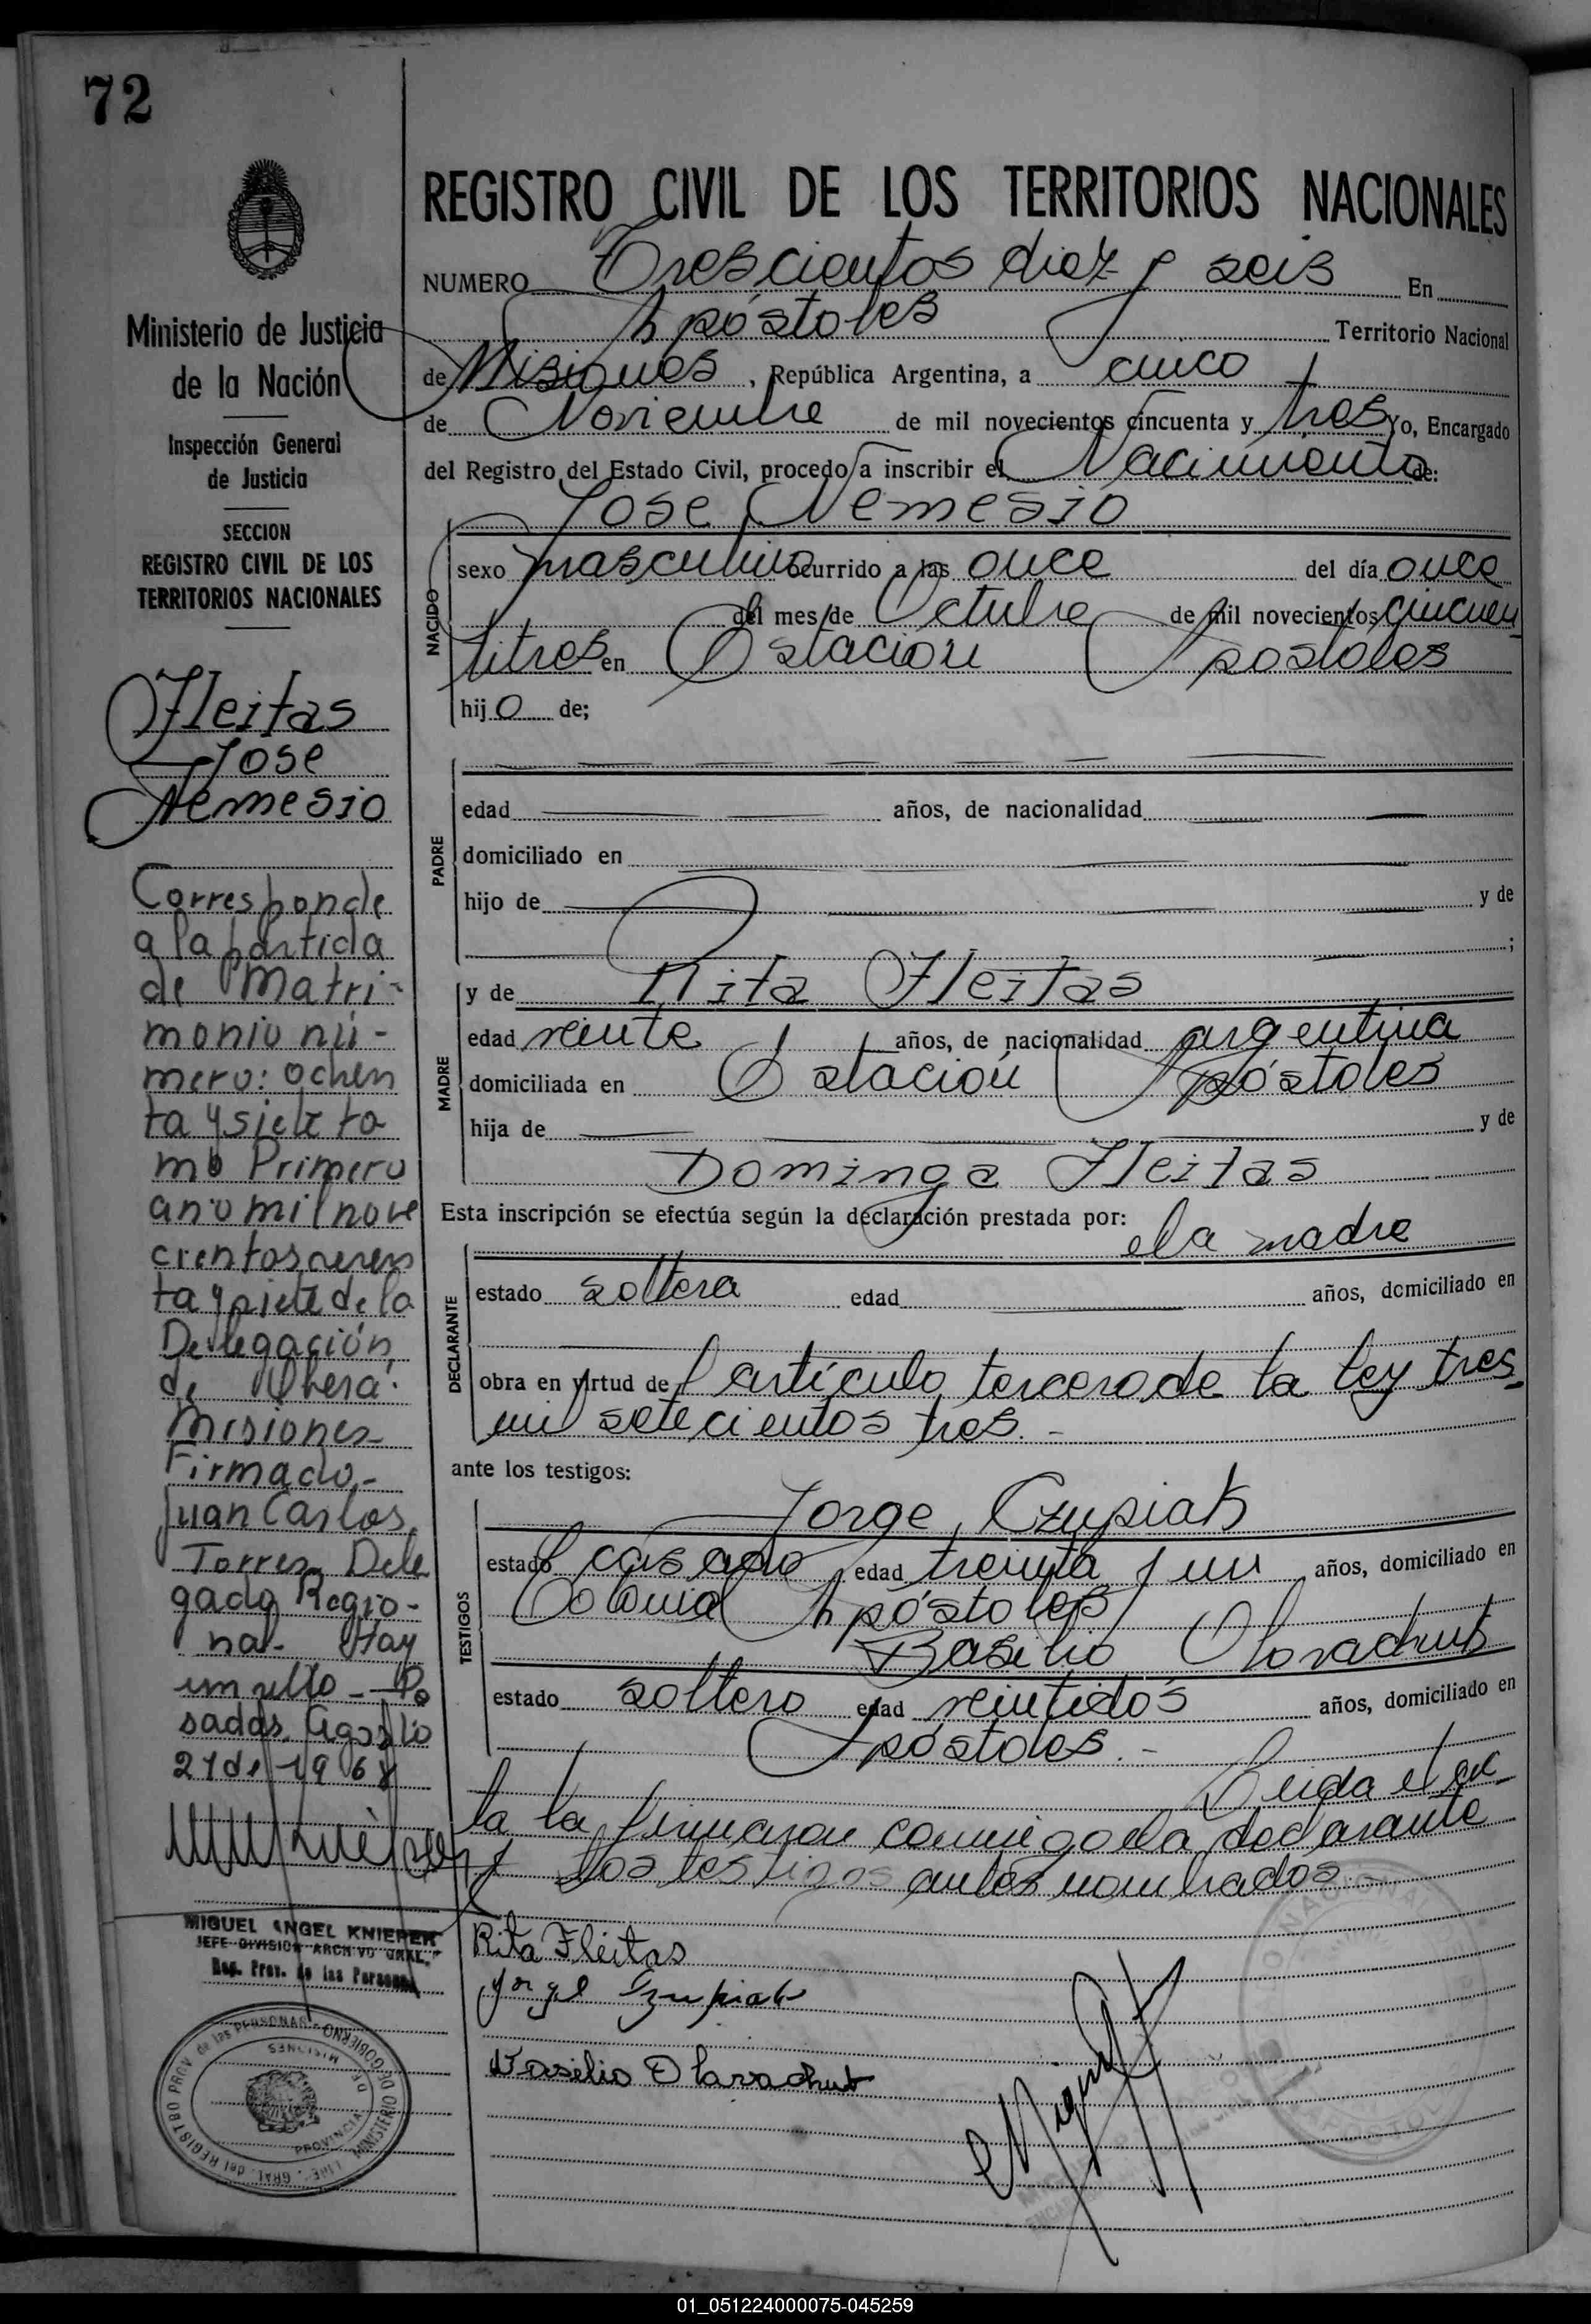 72
Ministerio de Justicia
de la Nación
Inspección General
de Justicia
SECCION
REGISTRO CIVIL DE LOS
TERRITORIOS NACIONALES
Fleitas
Jose
Nemesio
Corresponde
a la partida
de Matri-
monio nú-
mero: ochen
ta y siete to
mo Primero
año mil nove
cientos
ta y siete de la
Delegación
de Oberá.
Misiones
Firmado-
Juan Carlos
Torres Dele
gado Regio-
nal- Hay
un sello - Po
sadas, Agosto
21 de 1968
MIGUEL ANGEL KNIEPER
JEFE DIVISION ARCHIVO GRAL.
Reg. Prov. de las Personas
REGISTRO CIVIL DE LOS TERRITORIOS NACIONALES
NUMERO Trescientos diez y seis En
Apóstoles Territorio Nacional
de Misiones, República Argentina, a cinco
de Noviembre de mil novecientos cincuenta y tres Yo, Encargado
del Registro del Estado Civil, procedo a inscribir el Nacimiento de:
Jose Nemesio
NACIDO
sexo masculino ocurrido a las once del día once
del mes de Octubre de mil novecientos cincuen
titres en Estación Apostoles
hijo de;
PADRE
edad años, de nacionalidad
domiciliado en
hijo de y de
;
MADRE
y de Rita Fleitas
edad veinte años, de nacionalidad argentina
domiciliada en Estación Apóstoles
hija de y de
Dominga Fleitas
Esta inscripción se efectúa según la declaración prestada por:
DECLARANTE
la madre
estado soltera edad años, domiciliado en
obra en virtud del artículo tercero de la ley tres
mil setecientos tres.-
ante los testigos:
TESTIGOS
Jorge Czupiak
estado casado edad treinta y un años, domiciliado en
Colonia Apóstoles
Basilio Olovachuk
estado soltero edad veintidós años, domiciliado en
Apóstoles.-
Leida el ac
ta la firmaron conmigo la declarante
y los testigos antes nombrados
Rita Fleitas
Jorge Czupiak
Basilio Olavachuk
01_051224000075-045259